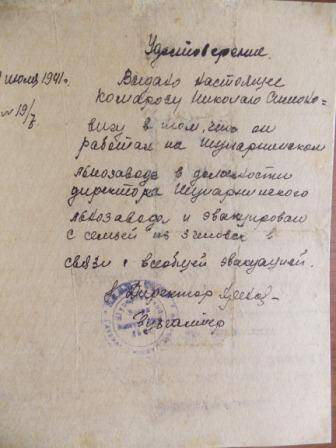 Удостоверение.
июля 1941г.
№ 19/7.
Выдано настоящее
Комарову Николаю Симоно=
вичу в том, что он
работал на Шумаринском
льнозаводе в должности
директора Шумаринского
льнозавода и эвакуирован
с семьей из 3 человек в
связи с всеобщей эвакуацией.
Директор
Бухгалтер